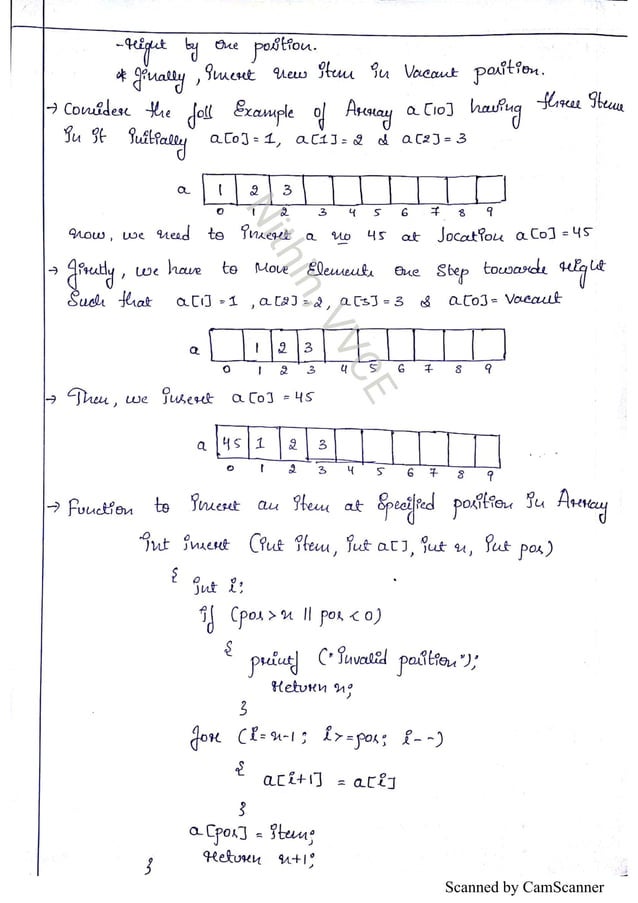 -Right by one position.
* Finally, Insert new Item in Vacant position.
→ Consider the foll Example of Array a[10] having three Items
In it Initially a[0]=1, a[1]=2 & a[2]=3
a 1 2 3
0 1 2 3 4 5 6 7 8 9
Now, we need to Insert a no 45 at location a[0]=45
→ Firstly, we have to Move Elements One Step towards right
Such that a[1]=1, a[2]=2, a[3]=3 & a[0]= Vacant
a 1 2 3
0 1 2 3 4 5 6 7 8 9
→ Then, we insert a[0]=45
a 45 1 2 3
0 1 2 3 4 5 6 7 8 9
→ Function to Insert an Item at Specified position in Array
Int insert (Int item, Int a[], Int n, Int pos)
{ int i;
if (pos > n || pos < 0)
{ printf ("Invalid position");
Return n;
}
for (i=n-1; i>=pos; i--)
{
a[i+1] = a[i]
}
a[pos] = item;
Return n+1;
}
Nithin VVCE
Scanned by CamScanner